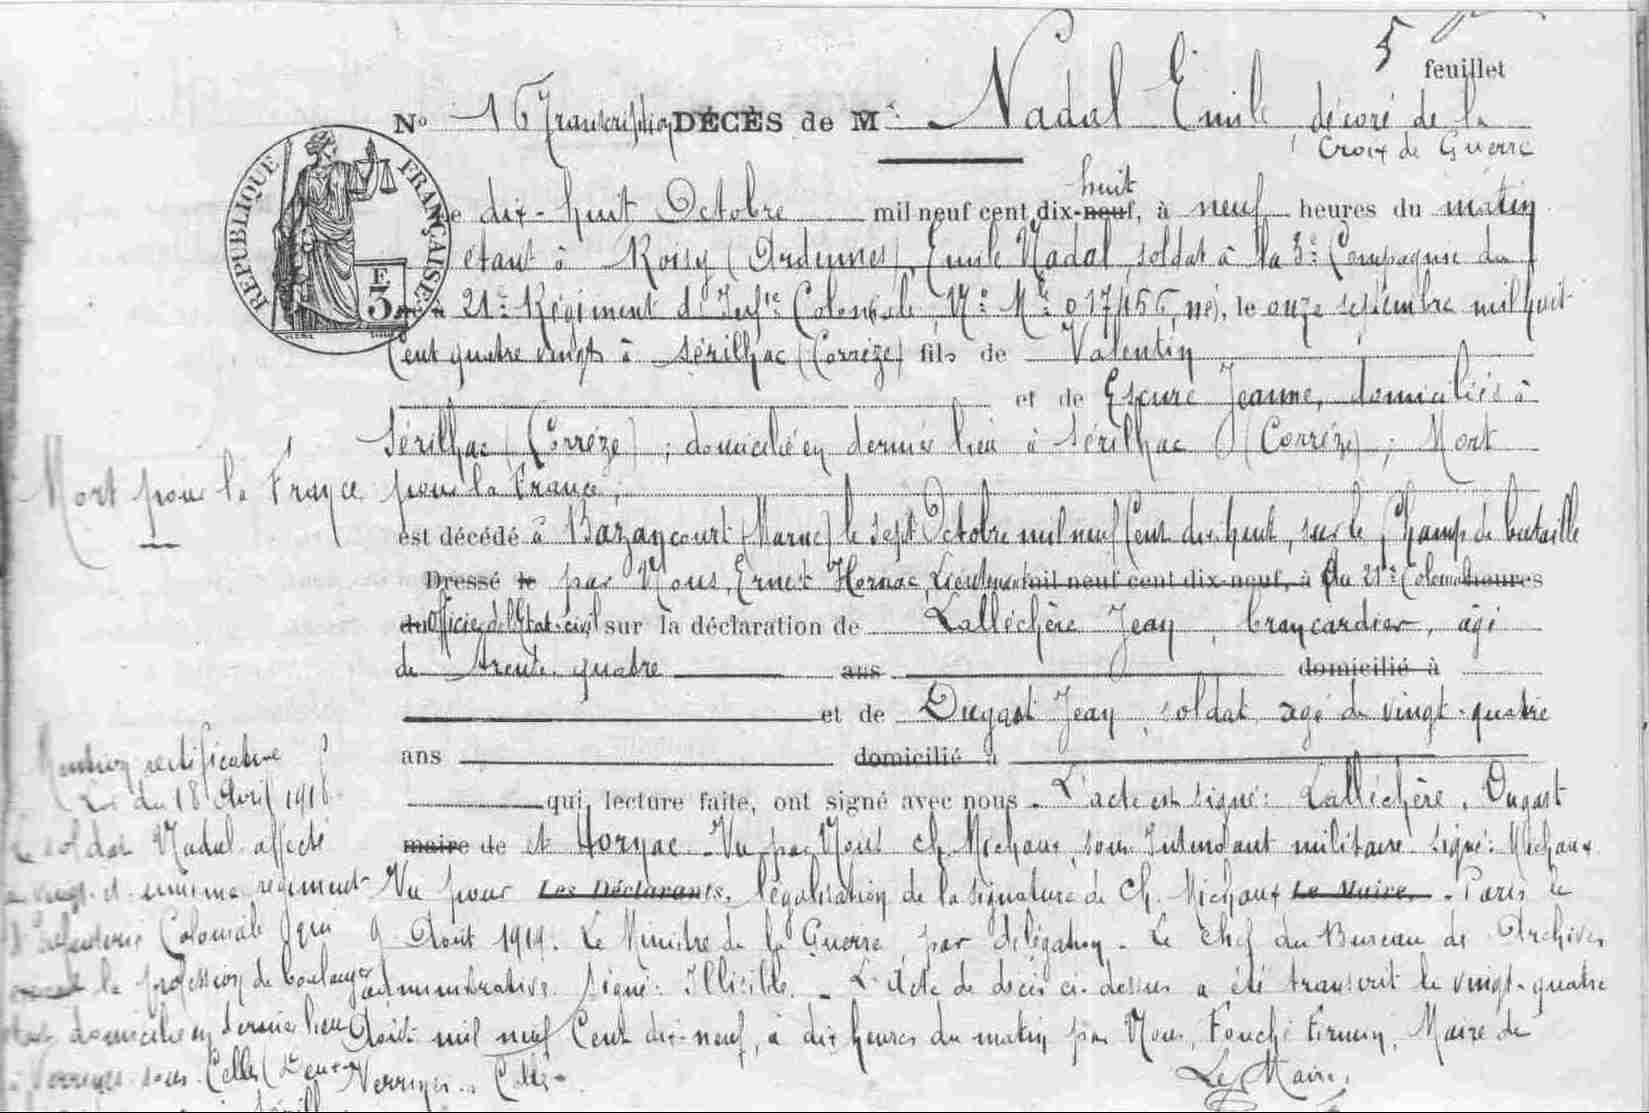 5
feuillet
No 16 Transcription DÉCÈS de Mr Nadal Emile décoré de la
Croix de Guerre
RÉPUBLIQUE FRANÇAISE
E
3
huit
Le dix-huit Octobre mil neuf cent dix-neuf, à neuf heures du matin
étant à Roisy (Ardennes), Emile Nadal, soldat à la 3e Compagnie du
21e Régiment d'Infie Coloniale, No Mle 017156, né, le onze septembre mil huit
Cent quatre vingts à Sérilhac (Corrèze) fils de Valentin
et de Escure Jeanne, domiciliés à
Sérilhac (Corrèze) ; domicilié en dernier lieu à Sérilhac (Corrèze) ; Mort
Mort pour la France
pour la France,
est décédé à Bazancourt (Marne) le sept Octobre mil neuf Cent dix huit, sur le Champ de bataille
Dressé le par Nous, Ernest Hornac, Lieutenant mil neuf cent dix-neuf, à du 21e Colonial heures
du Officier de l'Etat-civil sur la déclaration de Lalléchère Jean, brancardier, âgé
de trente quatre ans domicilié à
et de Dugast Jean, soldat âgé de vingt-quatre
ans domicilié à
qui, lecture faite, ont signé avec nous. L'acte est signé: Lalléchère, Dugast
maire de et Hornac. Vu par Nous Ch. Michaux, sous Intendant militaire signé: Michaux
Vu pour Les Déclarants, légalisation de la signature de Ch. Michaux Le Maire, . Paris le
9 Août 1919. Le Ministre de la Guerre, par délégation. Le Chef du Bureau des Archives
administratives. Signé: Illisible. L'Acte de décès ci-dessus a été transcrit le vingt-quatre
Août mil neuf Cent dix-neuf, à dix heures du matin par Nous, Fouché Firmin, Maire de
Verrines. s. Celles.
Le Maire,
Mention rectificative
du 18 Avril 1918
soldat Nadal affecté
vingt-et-unième régiment
d'Infanterie Coloniale qui
la profession de boulanger
domicilié en dernier lieu
à Verrines-sous-Celles (Deux-